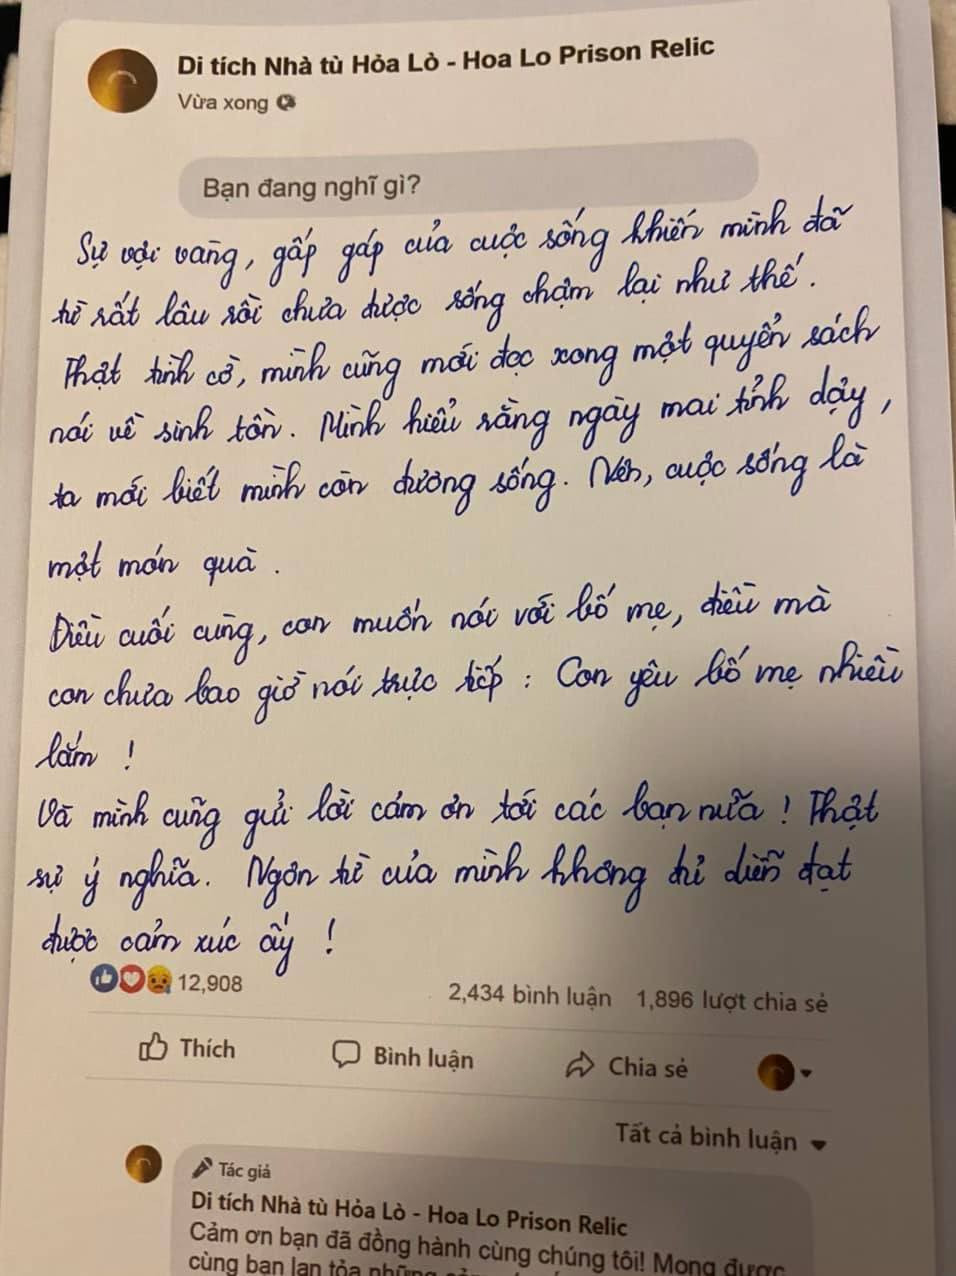 Di tích Nhà tù Hỏa Lò - Hoa Lo Prison Relic
Vừa xong
Bạn đang nghĩ gì?
Sự vội vàng, gấp gáp của cuộc sống khiến mình đã
từ rất lâu rồi chưa được sống chậm lại như thế.
Thật tình cờ, mình cũng mới đọc xong một quyển sách
nói về sinh tồn. Mình hiểu rằng ngày mai tỉnh dậy,
ta mới biết mình còn đương sống. Nên, cuộc sống là
một món quà.
Điều cuối cùng, con muốn nói với bố mẹ, điều mà
con chưa bao giờ nói trực tiếp : Con yêu bố mẹ nhiều
lắm !
Và mình cũng gửi lời cảm ơn tới các bạn nữa ! Thật
sự ý nghĩa. Ngôn từ của mình không đủ diễn đạt
được cảm xúc ấy !
12,908
2,434 bình luận 1,896 lượt chia sẻ
Thích Bình luận Chia sẻ
Tất cả bình luận
Tác giả
Di tích Nhà tù Hỏa Lò - Hoa Lo Prison Relic
Cảm ơn bạn đã đồng hành cùng chúng tôi! Mong được
cùng bạn lan tỏa những